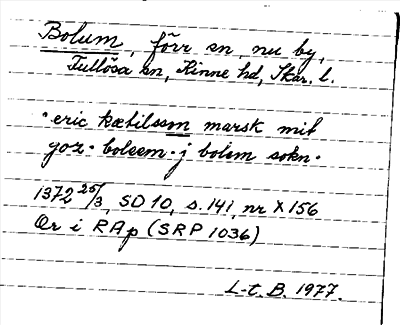 Bolum, förr sn, nu by,
Fullösa sn, Kinne hd, Skar. l.
"eric kætilsson marsk mit
goz · bolem · j bolem sokn ·
1372 25/3, SD 10, s. 141, nr X 156
Or i RAp (SRP 1036)
L-t. B. 1977.